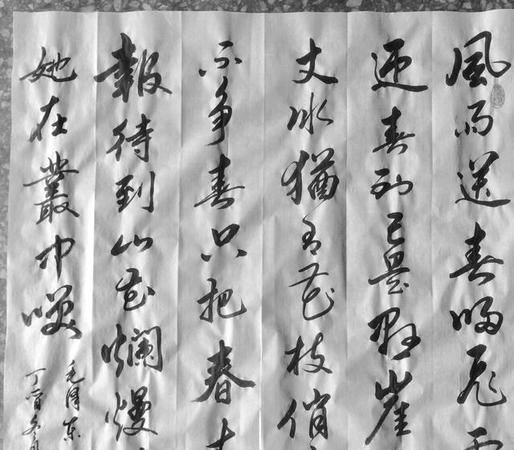 風雨送春歸飛
迎春到已是懸崖
丈冰猶有花枝俏
不争春只把春
報待到山花爛熳
她在叢中咲
毛澤东
丁酉